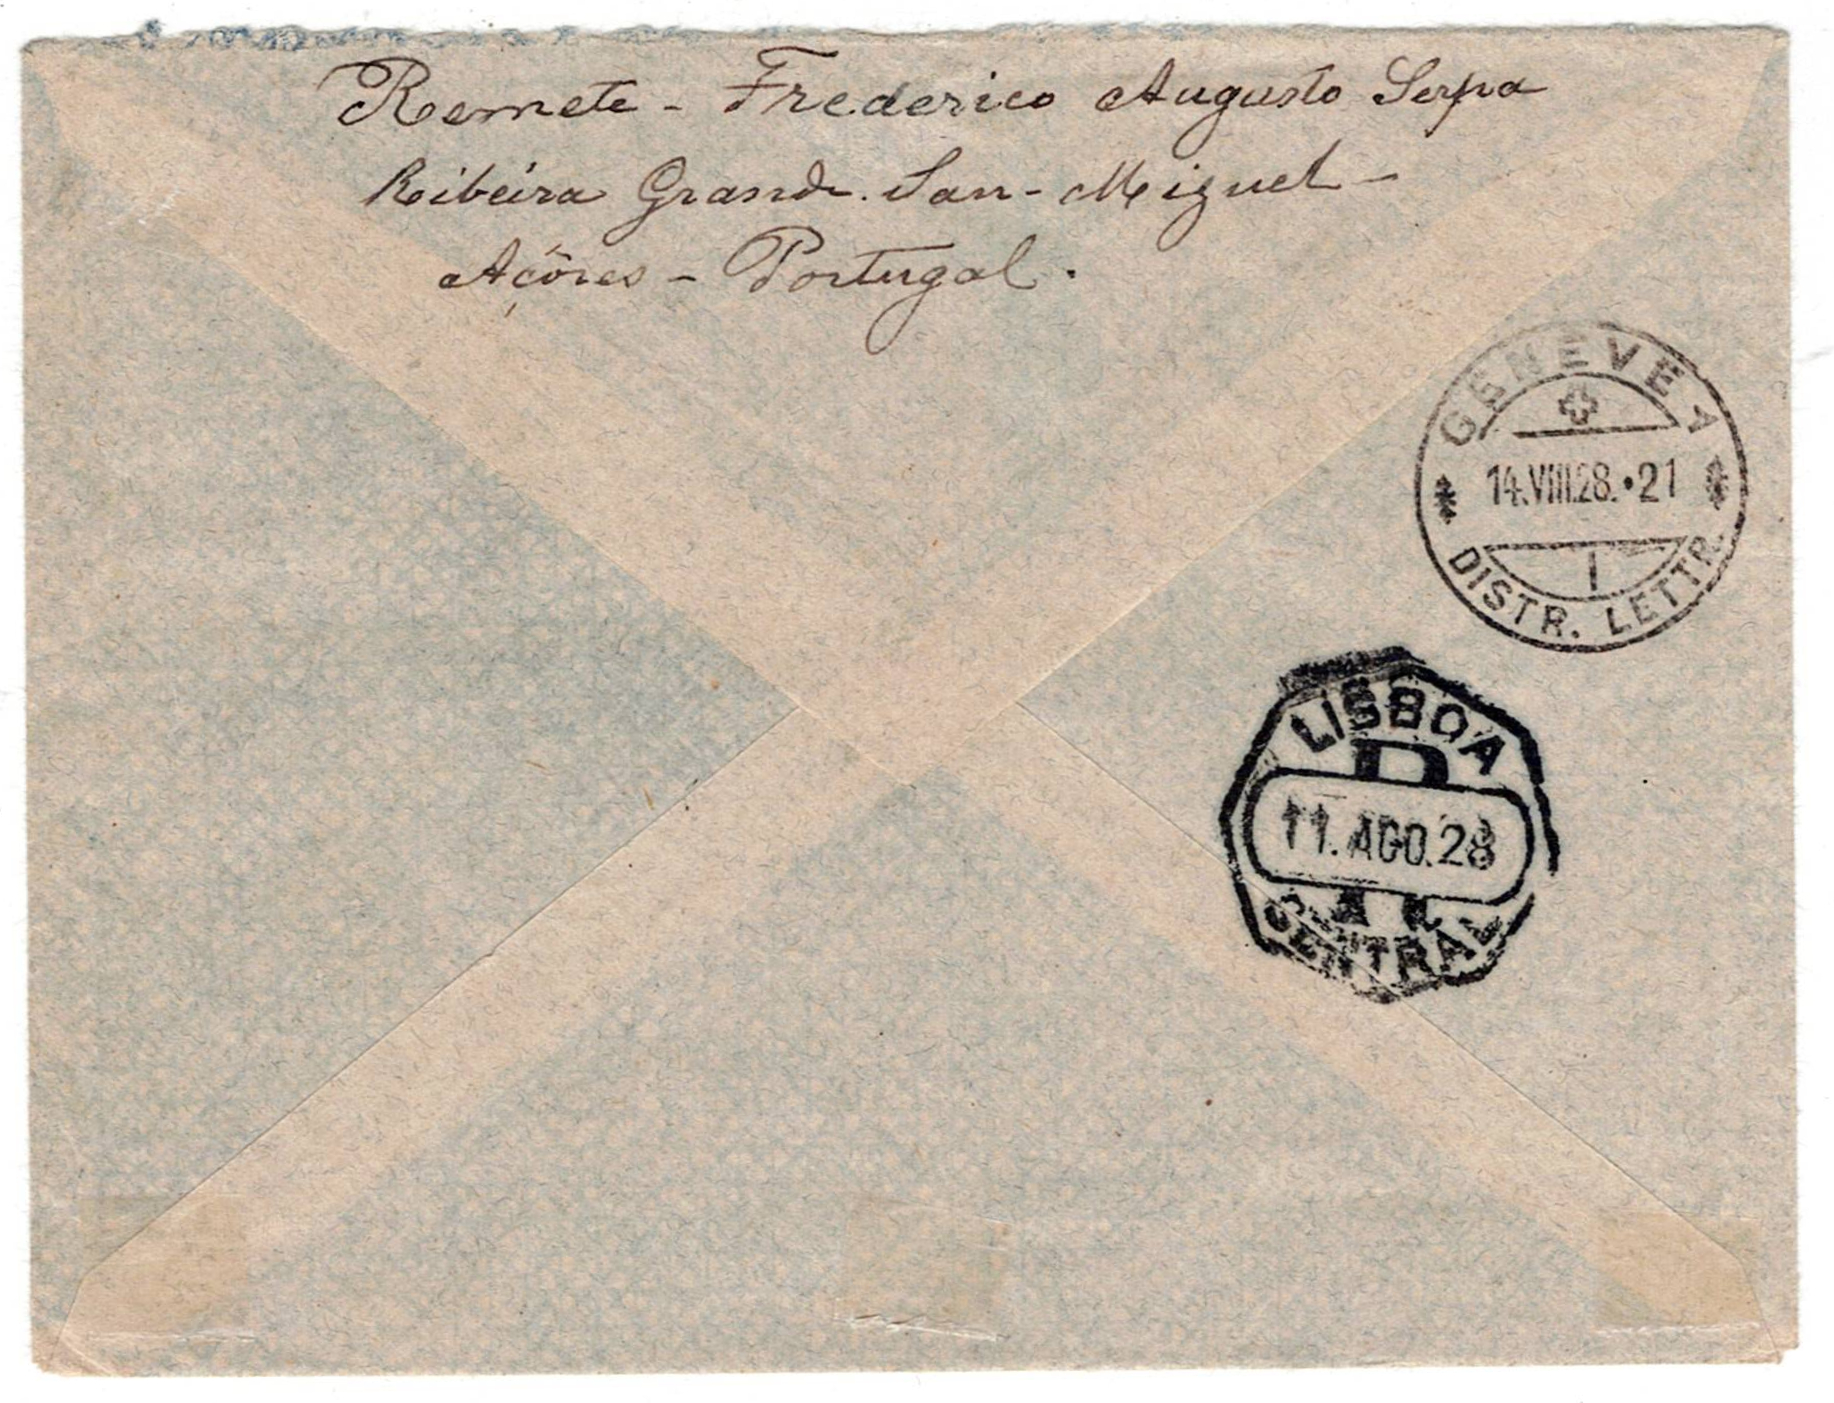 Remete - Frederico Augusto Serpa
Ribeira Grande. San-Miguel -
Açôres - Portugal.
GENÈVE 1
14.VIII.28.•21
I
DISTR. LETTR.
LISBOA
R
11.AGO.28
CENTRAL